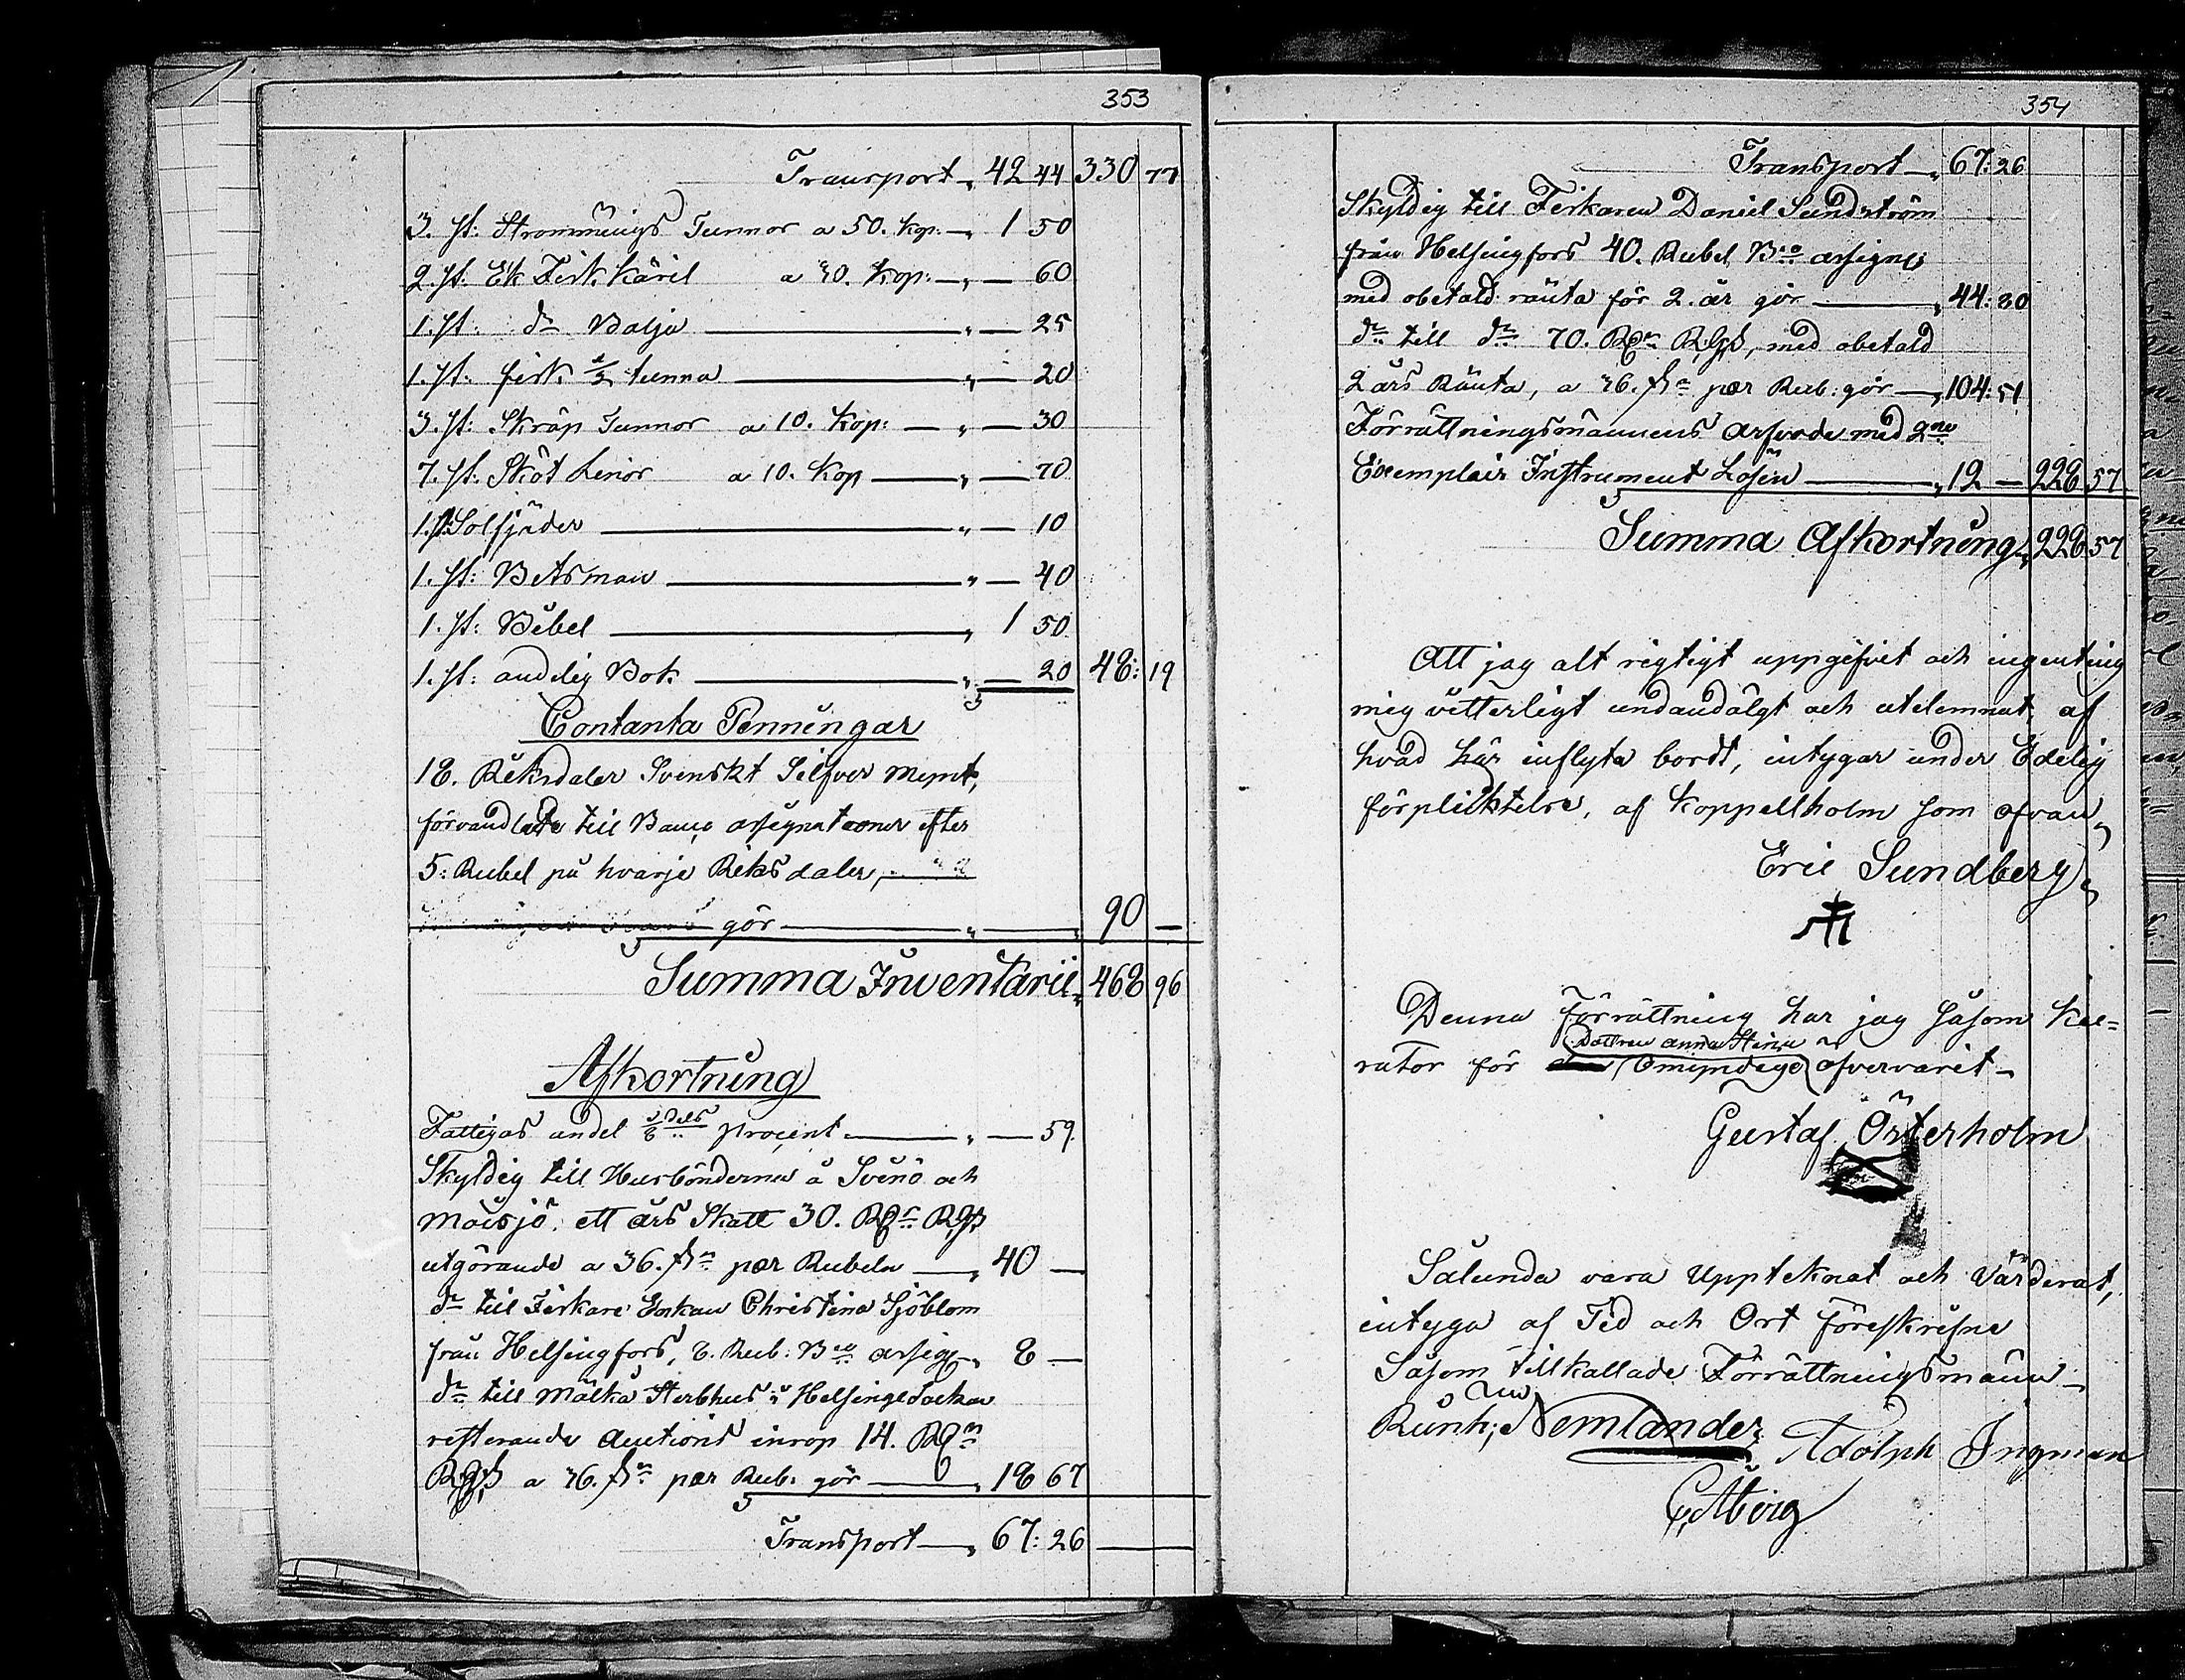 353
Transport 42 44 330 77
3. st: Strömmings Tunnor a 50. kop: 1 50
2. st: Ek Fisk käril a 30. kop: — 60
1. st: do Balja — 25
1. st: fisk ½ tunna — 20
3. st: Skräp Tunnor a 10. kop: — 30
7. st: Sköt Linor a 10. kop — 70
1. st: Solfjäder — 10
1. st: Betsman — 40
1. st: Bibel 1 50
1. st: andelig Bok — 20 48: 19
Contanta Penningar
18. Riksdaler Svenskt Silfver mynt,
förvandlade till Banco assignationer efter
5: Rubel på hvarje Riksdaler,
gör 90 —
Summa Inventarii 468 96
Afkortning
Fattigas andel 1/8 dels procent — 59
Skyldig till Husbönderna å Svinö och
Moisjö, ett års Skatt 30. Rdr Rgs
utgörande a 36. sk pær Rubeln 40 —
do till Fiskare Enkan Christina Sjöblom
från Helsingfors, 8. Rub: Bco assig 8 —
do till Mälkä Sterbhus i Helsinge Socken
resterande Auctions inrop 14. Rdr
Rgs a 36. sk pær Rub: gör 18 67
Transport 67: 26
354
Transport 67: 26
Skyldig till Fiskaren Daniel Sundström
från Helsingfors 40. Rubel Bco assigne
med obetald ränta för 2. år gör 44: 80
do till do 70. Rdr Rgs, med obetald
2 års Ränta, a 36. sk pær Rub: gör 104: 51
Förrättningsmännens arfvode med 2ne
Exemplair Instrument Lösen 12 — 228 57
Summa Afkortning 228 57
Att jag alt rigtigt uppgifvit och ingenting
mig vitterligt undandölgt och utelemnat, af
hvad här inflyta bordt, intygar under Edelig
förpliktelse, af Koppellholm som ofvan,
Eric Sundberg,
Denna förrättning har jag såsom Ku=
Dottren Anna Stina
rator för Omyndige öfvervarit
Gustaf Österholm
Sålunda vara Uppteknat och Värderat,
intyga af Tid och Ort föreskrifne
Såsom tillkallade Förrättningsmänn
Nemlander Adolph Ingman